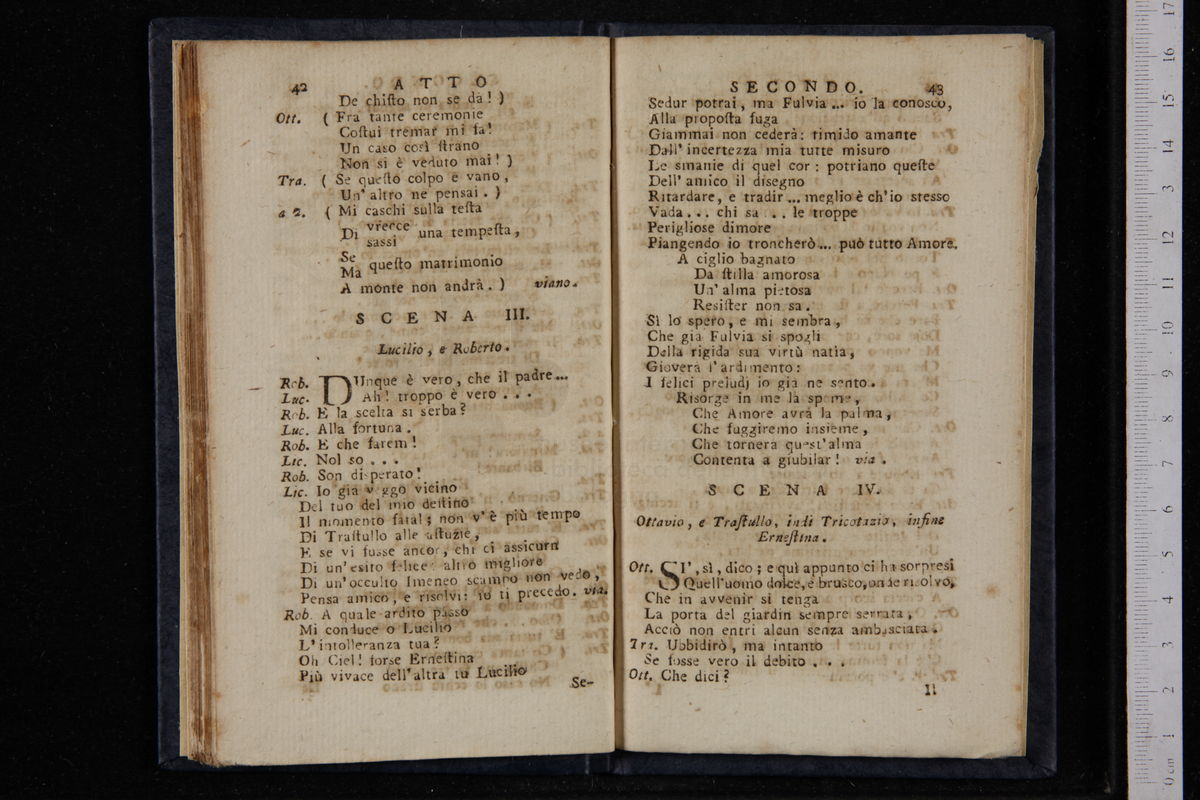 42 ATTO
De chiſto non se dà! )
Ott. ( Fra tante ceremonie
Coſtui tremar mi fa!
Un caso così ſtrano
Non si è veduto mai! )
Tra. ( Se queſto colpo è vano,
Un' altro ne pensai. )
a 2. ( Mi caschi sulla teſta
Di vrecce una tempeſta,
sassi
Se queſto matrimonio
Ma
A monte non andrà. ) viano.
SCENA III.
Lucilio, e Roberto.
Rob. DUnque è vero, che il padre...
Luc. Ah! troppo è vero...
Rob. E la scelta si serba?
Luc. Alla fortuna.
Rob. E che farem!
Luc. Nol so...
Rob. Son disperato!
Lic. Io già veggo vicino
Del tuo del mio deſtino
Il momento fatal; non v'è più tempo
Di Traſtullo alle aſtuzie,
E se vi fusse ancor, chi ci assicura
Di un'esito felice: altro migliore
Di un'occulto Imeneo scampo non vedo,
Pensa amico, e risolvi: io ti precedo. via.
Rob. A quale ardito passo
Mi conduce o Lucilio
L'intolleranza tua?
Oh Ciel! forse Erneſtina
Più vivace dell'altra tu Lucilio
Se-
SECONDO. 43
Sedur potrai, ma Fulvia... io la conosco,
Alla propoſta fuga
Giammai non cederà: timido amante
Dall'incertezza mia tutte misuro
Le smanie di quel cor: potriano queſte
Dell'amico il disegno
Ritardare, e tradir... meglio è ch'io stesso
Vada... chi sa... le troppe
Perigliose dimore
Piangendo io troncherò... può tutto Amore.
A ciglio bagnato
Da ſtilla amorosa
Un' alma pietosa
Resiſter non sa.
Sì lo spero, e mi sembra,
Che già Fulvia si spogli
Della rigida sua virtù natia,
Gioverà l'ardimento:
I felici preludj io già ne sento.
Risorge in me la speme,
Che Amore avrà la palma,
Che fuggiremo insieme,
Che tornerà quest'alma
Contenta a giubilar! via.
SCENA IV.
Ottavio, e Traſtullo, indi Tricotazio, infine
Erneſtina.
Ott. SI', sì, dico; e quì appunto ci ha sorpresi
Quell'uomo dolce, e brusco, onde risolvo,
Che in avvenir si tenga
La porta del giardin sempre serrata,
Acciò non entri alcun senza ambasciata.
Tra. Ubbidirò, ma intanto
Se fosse vero il debito...
Ott. Che dici?
Il